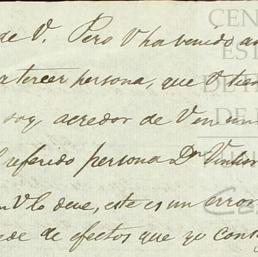 de V. Pero V ha venido a
tercer persona, que V tien
soy acredor de V en un
referido persona Dn
V lo deve, este es un error
de de efectos que yo cons
CEN
EST
DE
DE